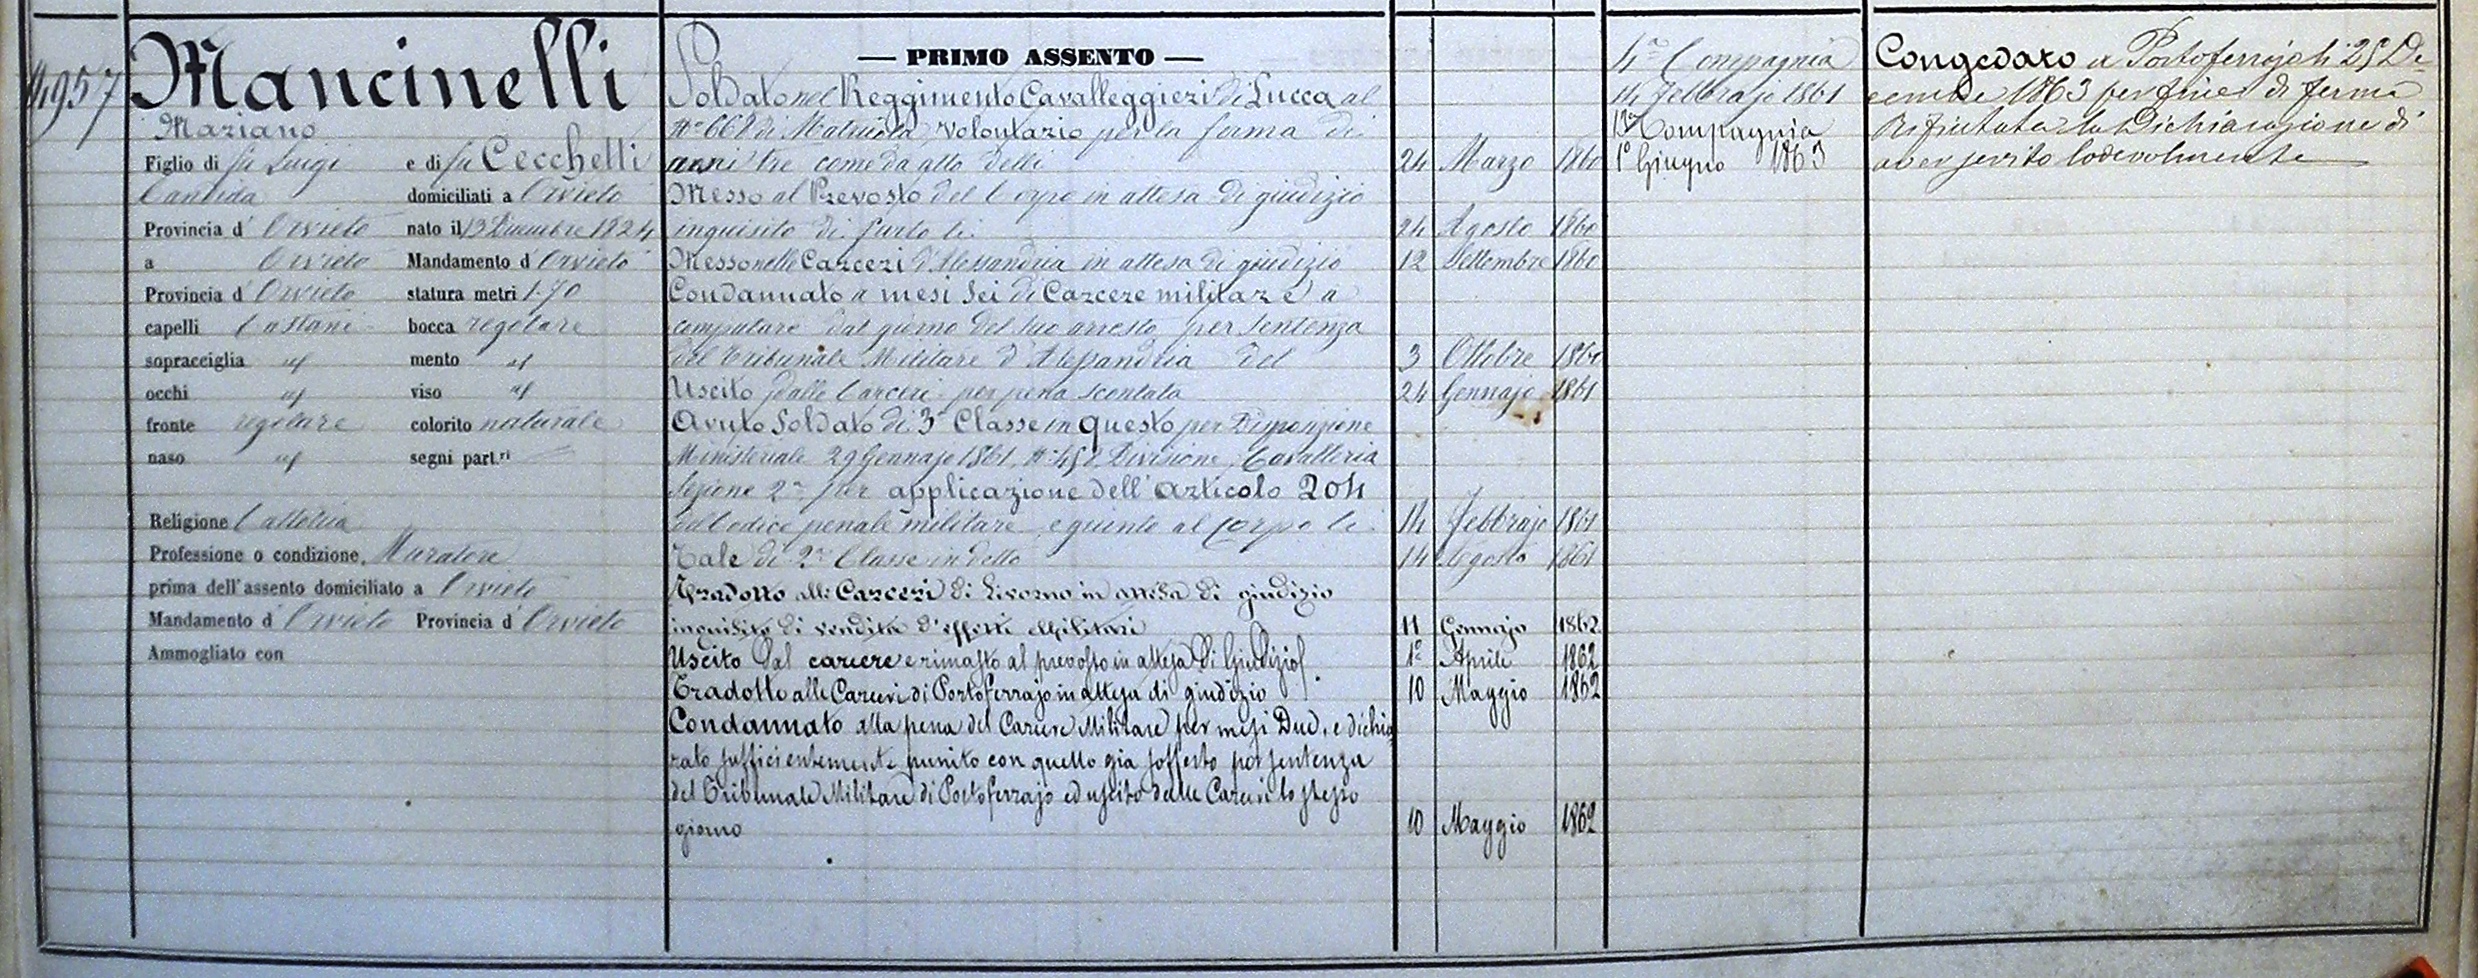 4957
Mancinelli
Mariano
Figlio di fu Luigi e di fu Cecchetti
Candida domiciliati a Orvieto
Provincia d' Orvieto nato il 13 Dicembre 1824
a Orvieto Mandamento d' Orvieto
Provincia d' Orvieto statura metri 1.70
capelli Castani bocca regolare
sopracciglia id mento id
occhi id viso id
fronte regolare colorito naturale
naso id segni part.ri
Religione Cattolica
Professione o condizione, Muratore
prima dell'assento domiciliato a Orvieto
Mandamento d' Orvieto Provincia d' Orvieto
Ammogliato con
— PRIMO ASSENTO —
Soldato nel Reggimento Cavalleggieri di Lucca al
N° 668 di Matricola, volontario per la ferma di
anni tre come da atto delli 24 Marzo 1860
Messo al Prevosto del Corpo in attesa di giudizio
inquisito di furto li 24 Agosto 1860
Messo nelle Carceri d'Alessandria in attesa di giudizio 12 Settembre 1860
Condannato a mesi sei di Carcere militare a
computare dal giorno del suo arresto per sentenza
del Tribunale Militare d'Alessandria del 3 Ottobre 1860
Uscito dalle Carceri per pena scontata 24 Gennajo 1861
Avuto Soldato di 3ª Classe in questo per Disposizione
Ministeriale 29 Gennajo 1861, N° 452 Divisione Cavalleria
Sezione 2ª per applicazione dell'articolo 204
del Codice penale militare, e giunto al Corpo li 14 Febbrajo 1861
Tale di 2ª Classe in detto 14 Agosto 1861
Tradotto alle Carceri di Livorno in attesa di giudizio
inquisito di vendita d'effetti Militari 11 Gennajo 1862
Uscito dal carcere e rimasto al prevosto in attesa di Giudizio 1° Aprile 1862
Tradotto alle Carceri di Portoferrajo in attesa di giudizio 10 Maggio 1862
Condannato alla pena del Carcere Militare per mesi Due, e dichia
rato sufficientemente punito con quello già sofferto per sentenza
del Tribunale Militare di Portoferrajo ed uscito dalle Carceri lo stesso
giorno 10 Maggio 1862
4ª Compagnia
14 Febbrajo 1861
12ª Compagnia
1° Giugno 1863
Congedato a Portoferrajo li 25 Di-
cembre 1863 per fine di ferma
Rifiutata la Dichiarazione di
aver servito lodevolmente